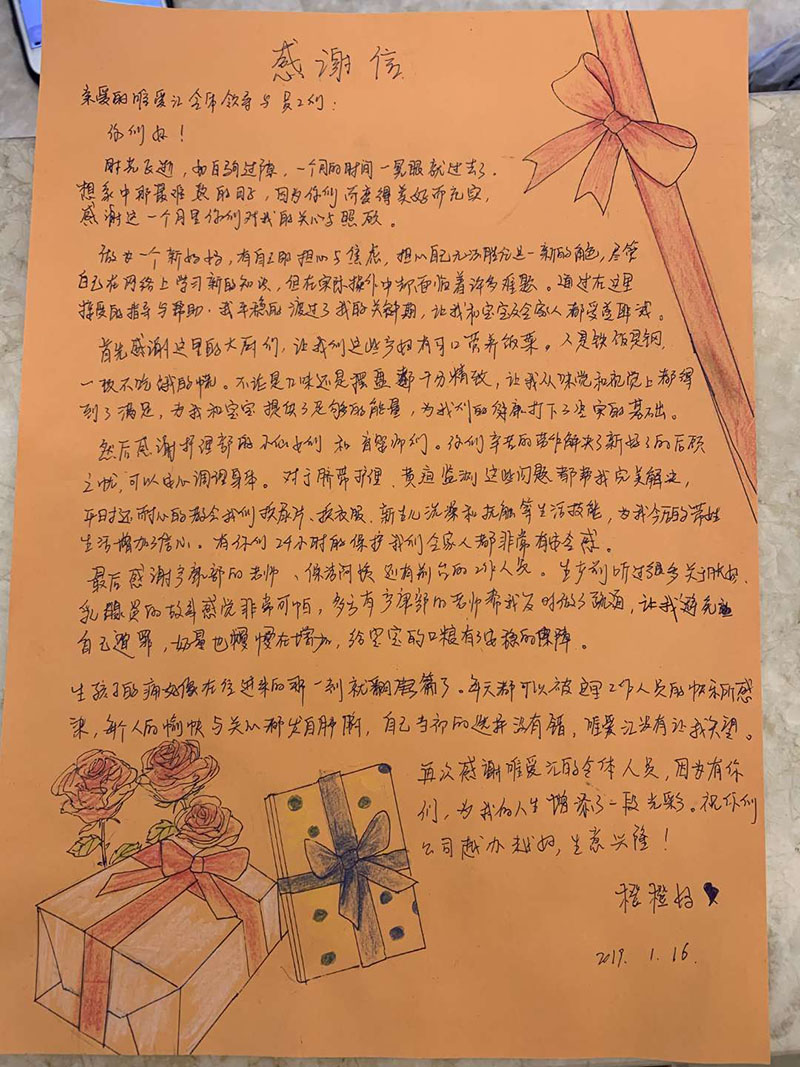 感谢信
亲爱的唯爱汇全体领导与员工们：
你们好！
时光飞逝，如白驹过隙，一个月的时间一晃眼就过去了。
想象中那最难熬的日子，因为你们而变得美好而充实，
感谢这一个月里你们对我的关心与照顾。
做为一个新妈妈，有自己的担心与焦虑，担心自己无法胜任这一新的角色，尽管
自己在网络上学习新的知识，但在实际操作中却面临着许多难题。通过在这里
接受的指导与帮助，我平稳的渡过了我的关键期，让我和宝宝及全家人都受益匪浅。
首先感谢这里的大厨们，让我们这些产妇有可口营养饭菜。人是铁饭是钢，
一顿不吃饿的慌。不论是口味还是摆盘都十分精致，让我从味觉和视觉上都得
到了满足，为我和宝宝提供了足够的能量，为我们的健康打下了坚实的基础。
然后感谢护理部的小仙女们和育婴师们。你们辛苦的劳作解决了新妈妈的后顾
之忧，可以安心调理身体。对于脐带护理、黄疸监测这些问题都帮我完美解决，
平时还耐心的教会我们换尿片、换衣服、新生儿洗澡和抚触等生活技能，为我今后的带娃
生活增加了信心。有你们24小时的保护我们全家人都非常有安全感。
最后感谢产康部的老师、保洁阿姨还有前台的工作人员。生产前听过很多关于
乳腺的故事感觉非常可怕，多亏有产康部的老师帮我及时做了疏通，让我避免
自己遭罪，奶量也慢慢在增加，给宝宝的口粮有了安稳的保障。
生孩子的痛好像在住进来的那一刻就翻篇了。每天都可以被这里工作人员的快乐所感
染，每个人的愉快与关心都发自肺腑，自己当初的选择没有错，唯爱汇没有让我失望。
再次感谢唯爱汇的全体人员，因为有你
们，为我的人生增添了一段光彩。祝你们
公司越办越好，生意兴隆！
橙橙妈
2019.1.16